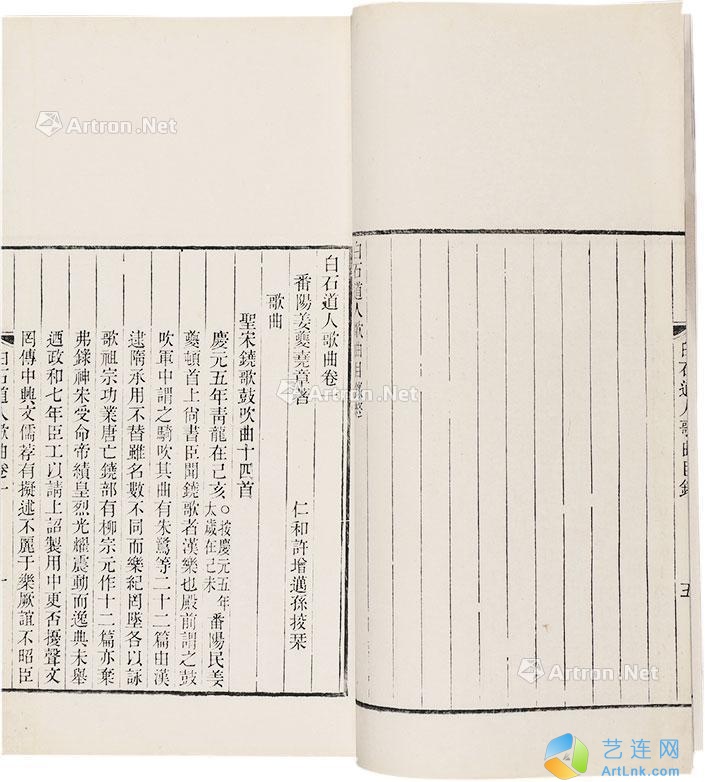 白石道人歌曲目錄
五
白石道人歌曲卷一
番陽姜夔堯章著
仁和許增邁孫校栞
歌曲
聖宋鐃歌鼓吹曲十四首
慶元五年靑龍在己亥○按慶元五年太歲在己未番陽民姜
夔頓首上尚書臣聞鐃歌者漢樂也殿前謂之鼓
吹軍中謂之騎吹其曲有朱鷺等二十二篇由漢
逮隋承用不替雖名數不同而樂紀罔墜各以詠
歌祖宗功業唐亡鐃部有柳宗元作十二篇亦棄
弗錄神宋受命帝績皇烈光耀震動而逸典未舉
迺政和七年臣工以請上詔製用中更否擾聲文
罔傳中興文儒荐有擬述不麗于樂厥誼不昭臣
白石道人歌曲卷一
一
Artron.Net
Artron.Net
Artron.Net
Artron.Net
艺连网
ArtLnk.com